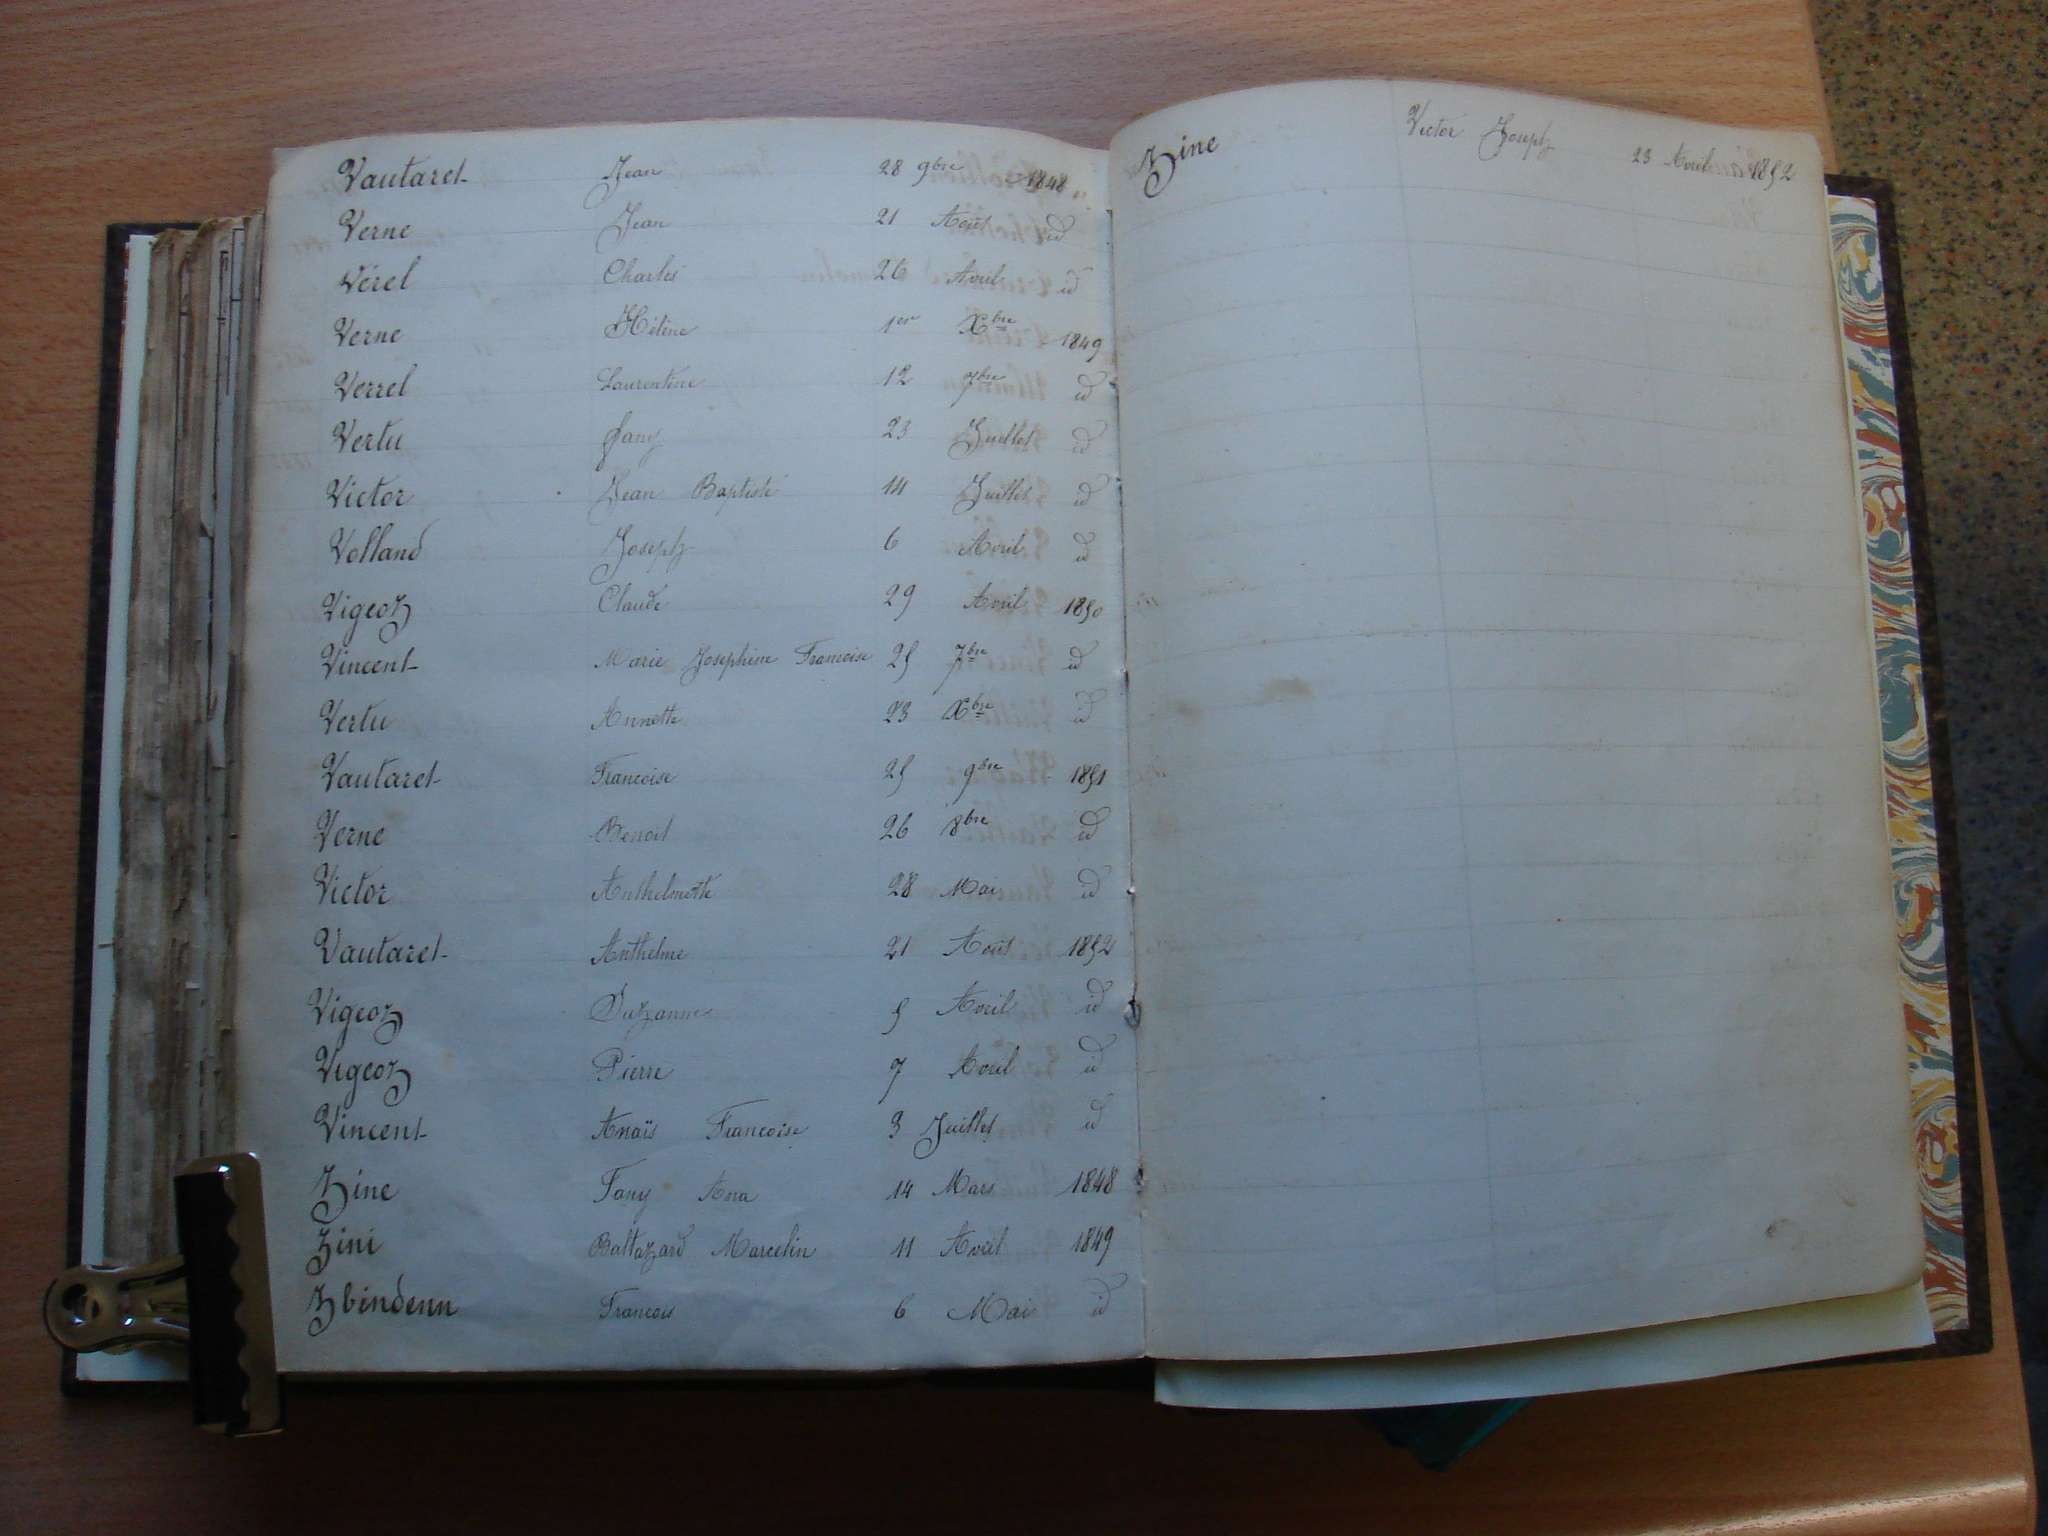 Vautaret Jean 28 9bre 1848
Verne Jean 21 Août id
Vérel Charles 26 Avril id
Verne Hélène 1er Xbre 1849
Verrel Laurentine 12 7bre id
Vertu fany 23 Juillet id
Victor Jean Baptiste 14 Juillet id
Volland Joseph 6 Avril id
Vigeoz Claude 29 Avril 1850
Vincent Marie Josephine Francoise 25 7bre id
Vertu Annette 23 Xbre id
Vautaret Francoise 25 9bre 1851
Verne Benoit 26 8bre id
Victor Anthelmette 28 Mai id
Vautaret Anthelme 21 Août 1852
Vigeoz Suzanne 5 Avril id
Vigeoz Pierre 7 Avril id
Vincent Anaïs Francoise 3 Juillet id
Zine Fany Ana 14 Mars 1848
Zini Baltazard Marcelin 11 Avril 1849
Zbindenn Francois 6 Mai id
Zine Victor Joseph 23 Avril 1852